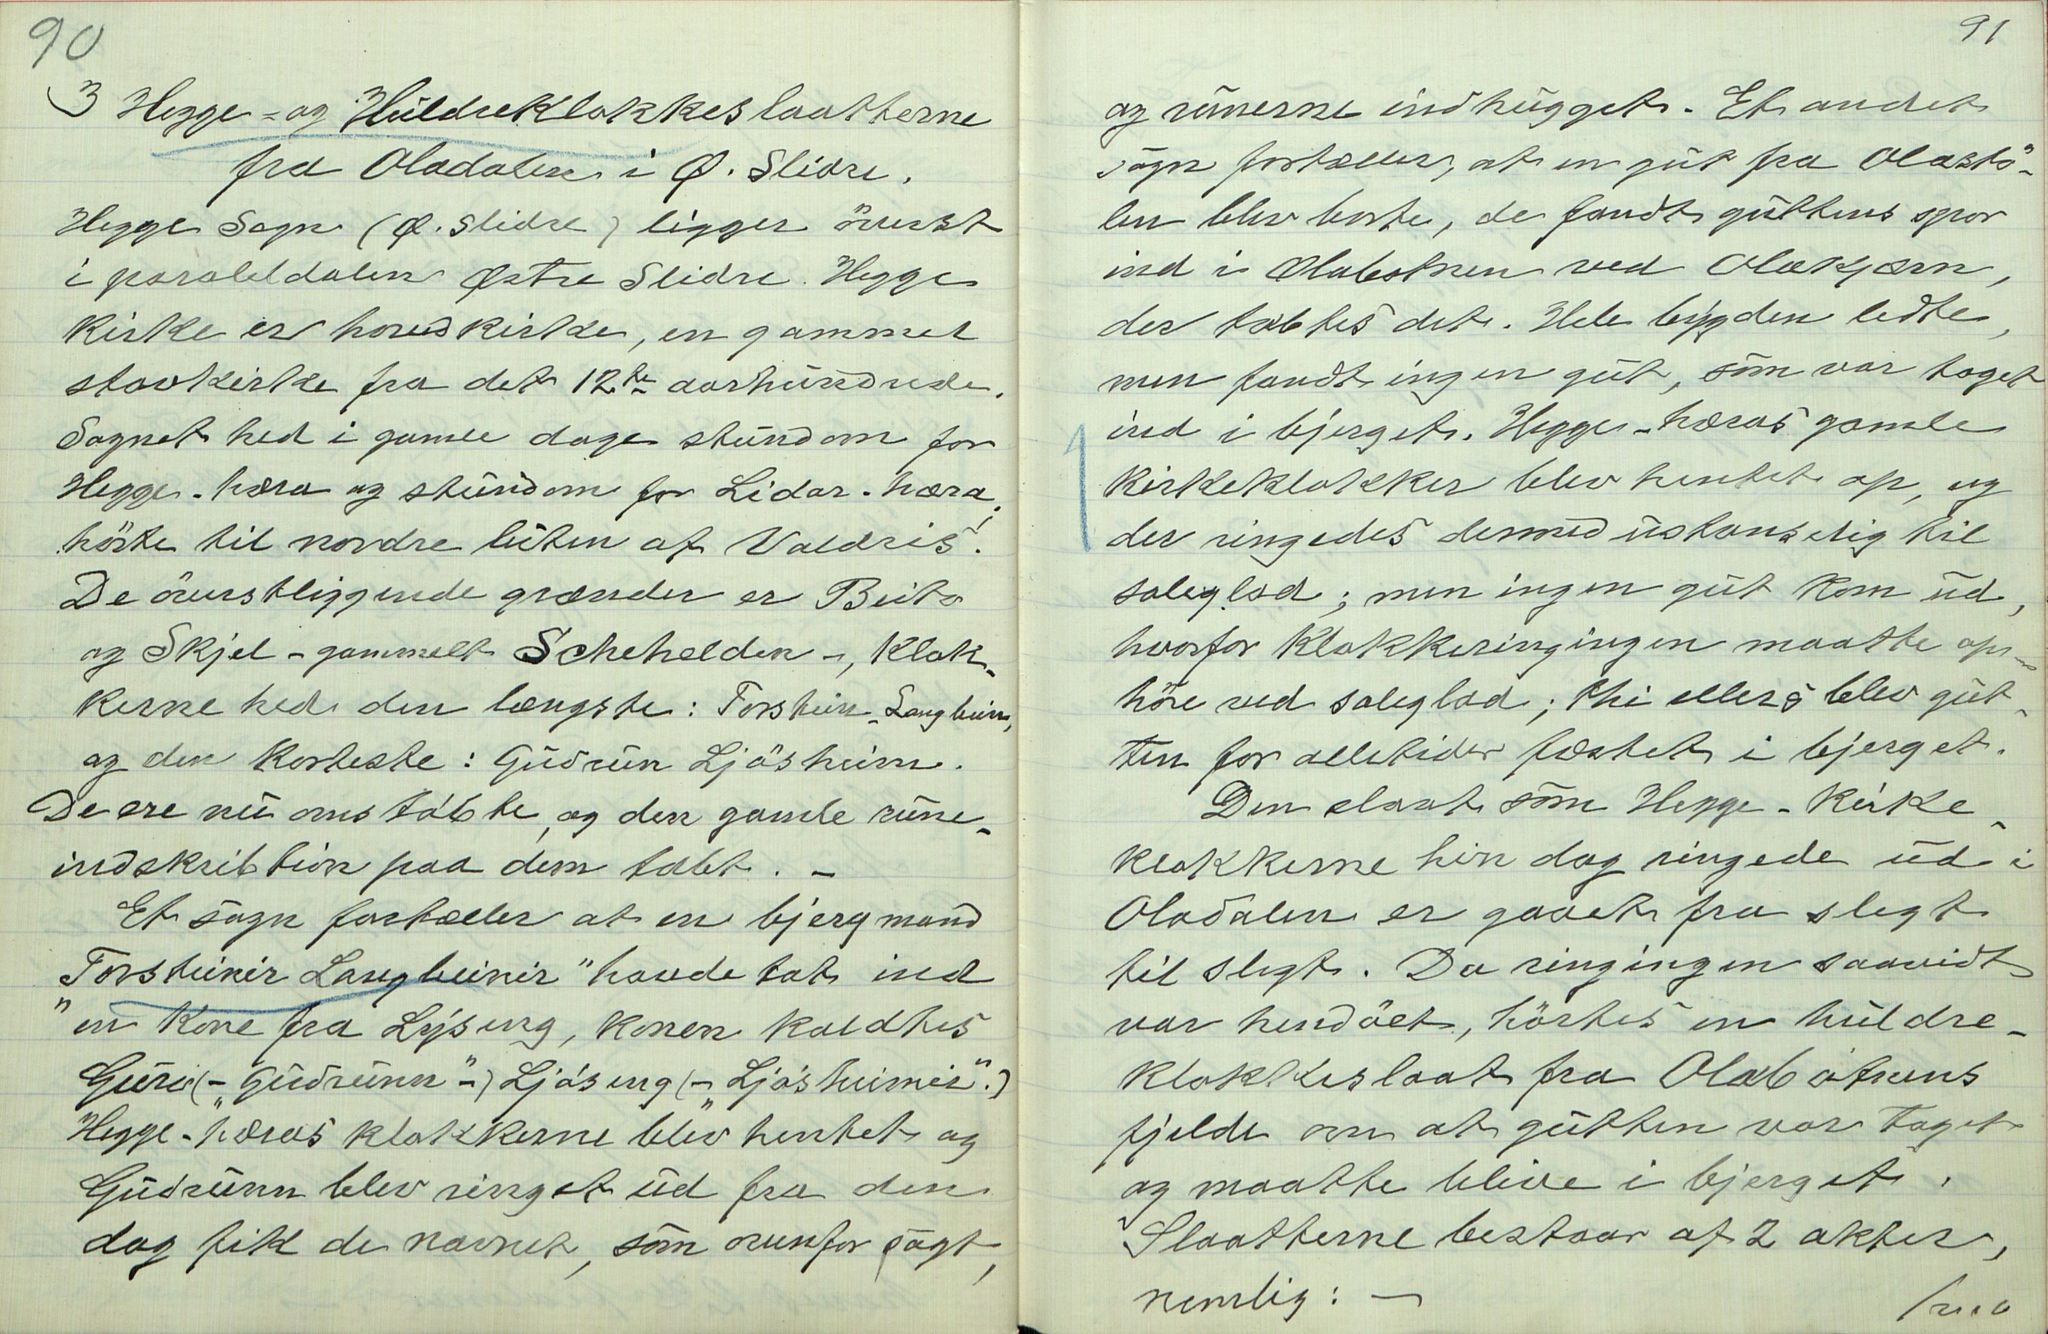 90
3 Hegge- og Huldreklokkeslaatterne
fra Oladalen i Ø. Slidre.
Hegge Sogn (Ø. Slidre) ligger överst
i paraleldalen Østre Slidre. Hegge
kirke er hovedkirke, en gammel
stavkirke fra det 12te aarhundrede.
Sognet hed i gamle dage stundom for
Hegge-hæra og stundom for Lidar-hæra,
hörte til nordre luten af Valdris.
De överstliggende grænder er Beito
og Skjel - gammelt Schehelden -, Klok-
kerne hed den længste: Torstein-Langbein,
og den korteste: Gudrun Ljösheim.
De ere nu omstöbte, og den gamle rune-
indskribtion paa dem tabt. -
Et sagn fortæller at en bjergmand
"Torsteinir Langbeinir" havde tat ind
en kone fra Lýseng, konen kaldtes
Guri (- "Gudrunn" -) Ljóseng (- "Ljósheimir".)
Hegge-hæras klokkerne blev hentet og
Gudrunn blev ringet ud fra den
dag fik de navnet, som ovenfor sagt,
91
og runerne indhugget. Et andet
sagn fortæller, at en gut fra Olastö-
len blev borte, de fandt guttens spor
ind i Olabotnen ved Olakjærn,
der tabtes det. Hele bygden ledte,
men fandt ingen gut, som var taget
ind i bjerget. Hegge-hæras gamle
kirkeklokker blev hentet op, og
der ringedes dermed ustanselig til
soleglad; men ingen gut kom ud,
hvorfor klokkeringingen maatte op-
höre ved soleglad; thi ellers blev gut-
ten for alletider fæstet i bjerget.
Den slaat som Hegge-kirke-
klokkerne hin dag ringede ud i
Oladalen er gaaet fra slegt
til slegt. Da ringingen saavidt
var hendöet, hörtes en huldre-
klokkeslaat fra Olabótnens
fjelde om at gutten var taget
og maatte blive i bjerget.
Slaatterne bestaar af 2 akter,
nemlig: -